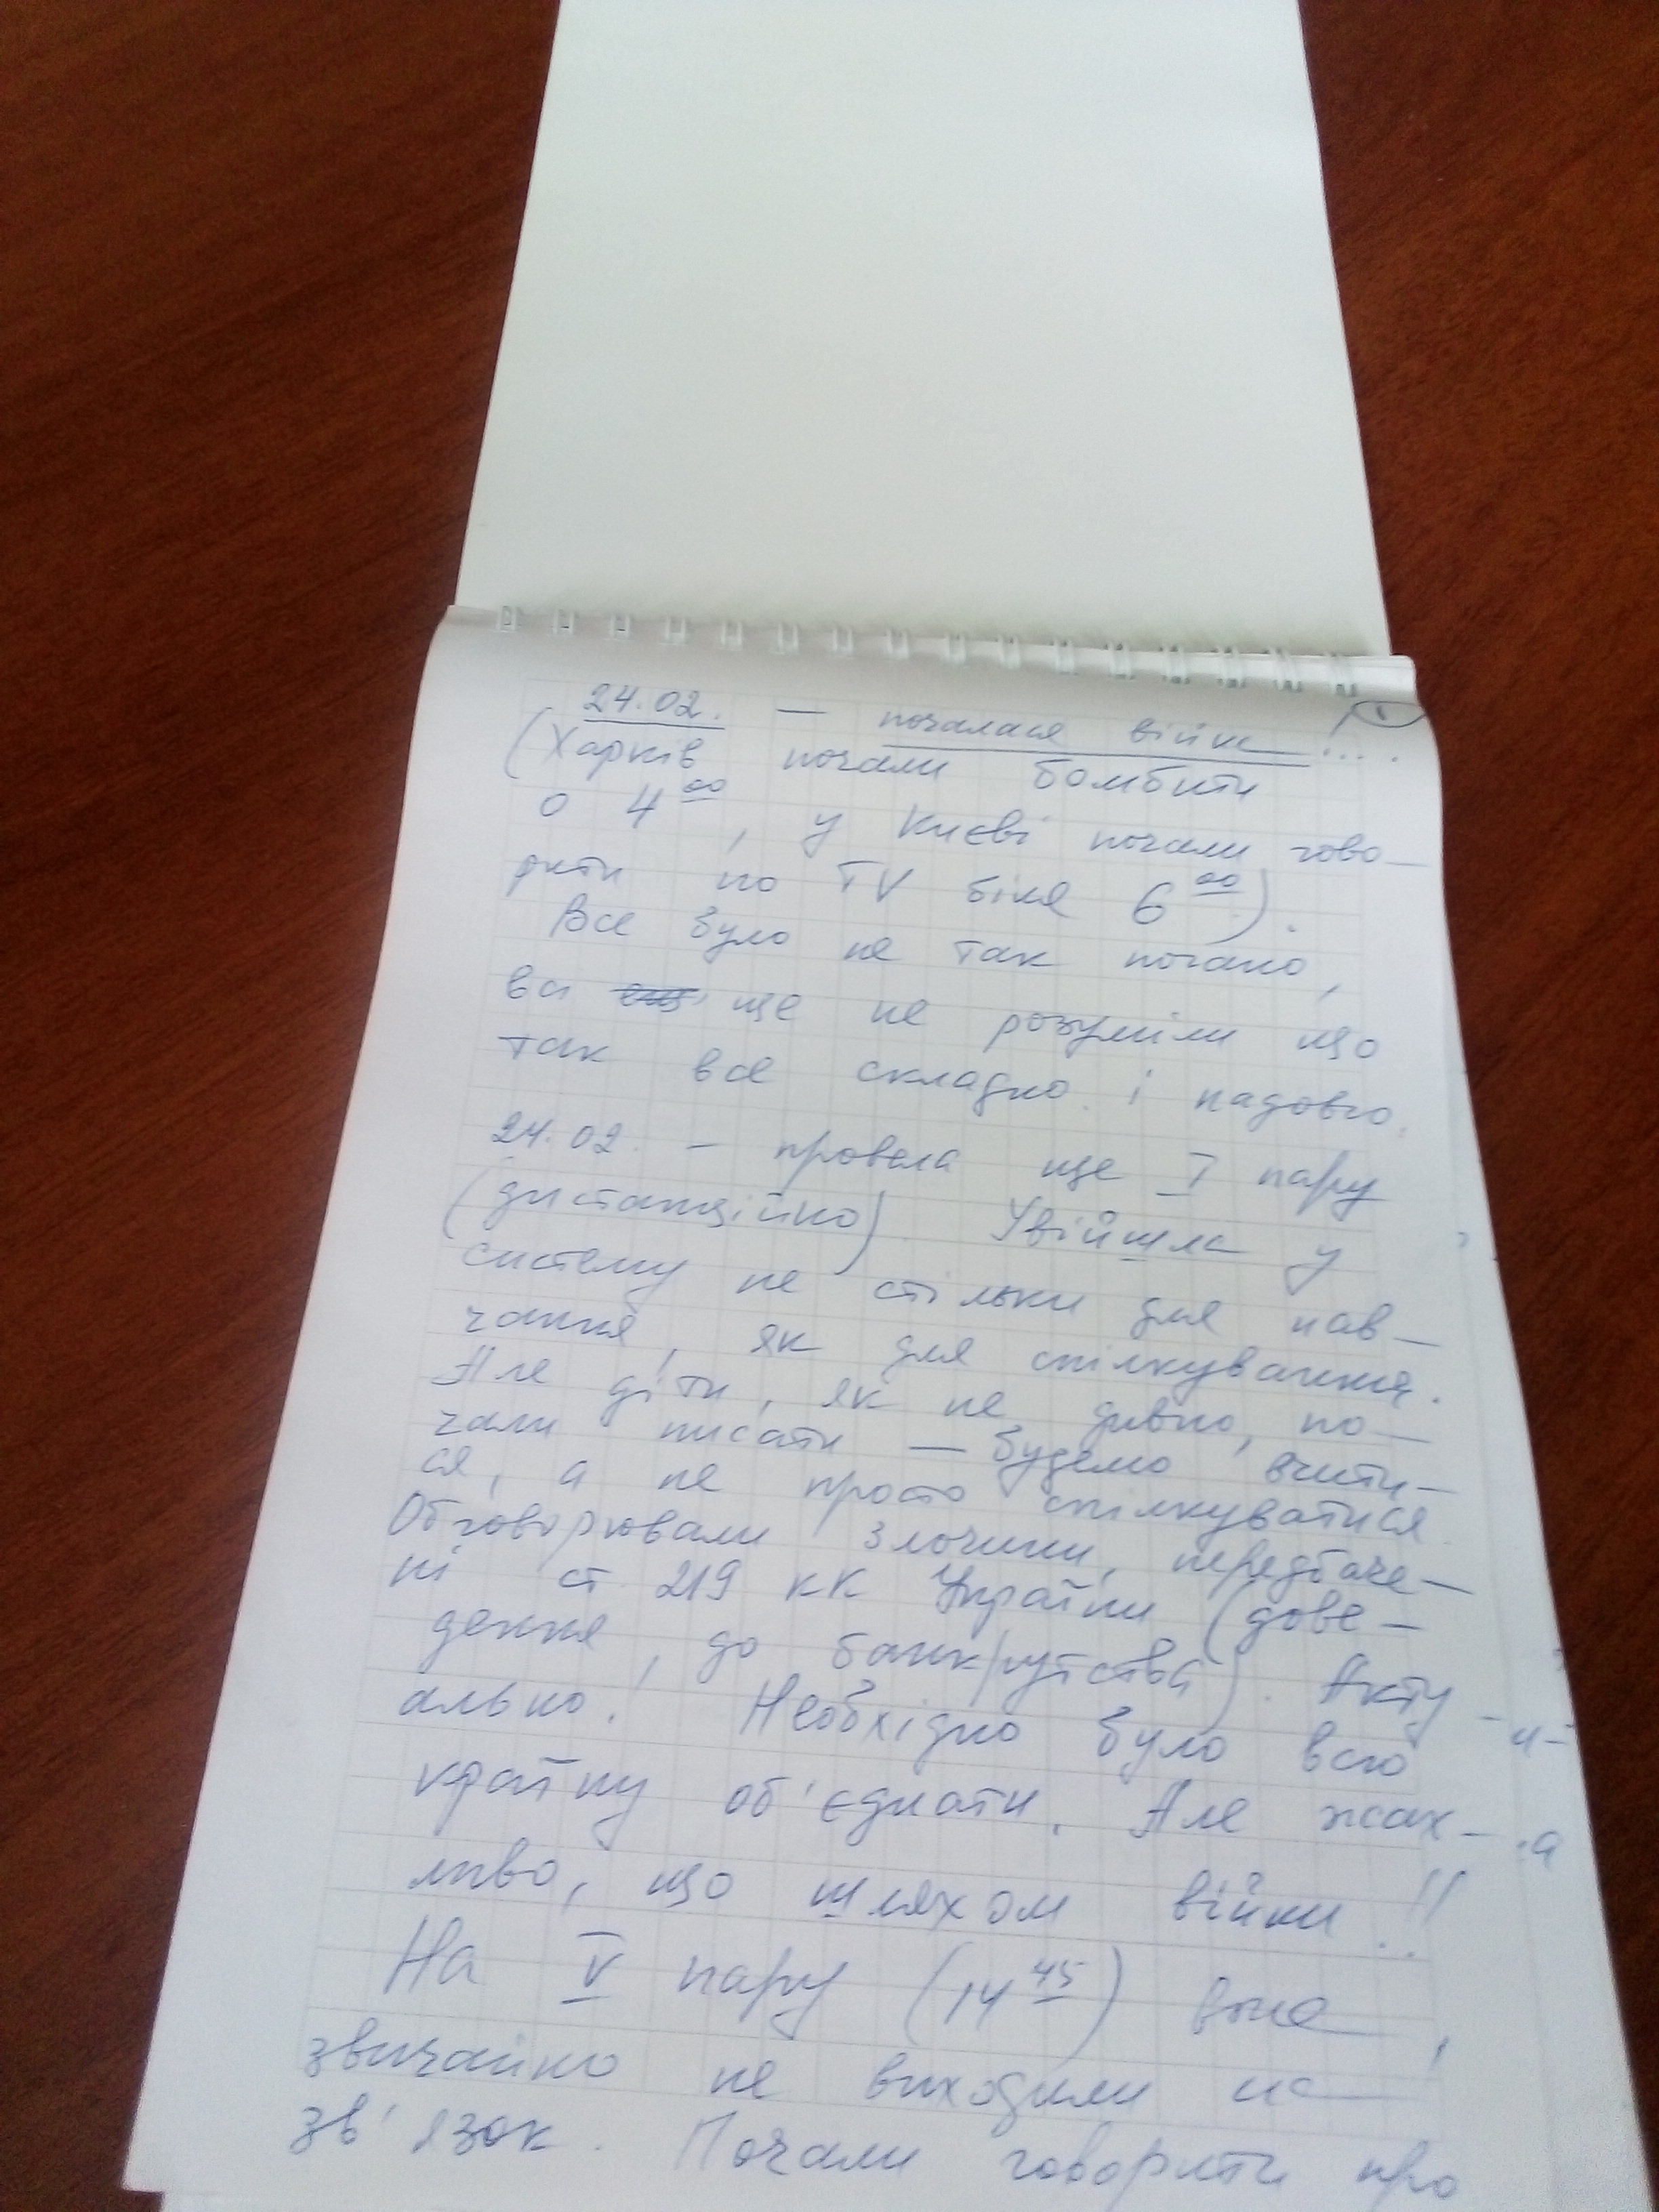 24.02. — почалася війна....
(Харків почали бомбити
о 4⁰⁰, у Києві почали гово-
рити по TV біля 6⁰⁰).
Все було не так погано,
всі ще не розуміли що
так все складно і надовго.
24.02. – провела ще I пару
(дистанційно). Увійшла у
систему не стільки для нав-
чання, як для спілкування.
Але діти, як не дивно, по-
чали писати — будемо вчити-
ся, а не просто спілкуватися.
Обговорювали злочини, передбаче-
ні ст. 219 КК України (дове-
дення до банкрутства). Акту-
ально! Необхідно було всю
країну об'єднати. Але жах-
ливо, що шляхом війни!!
На V пару (14⁴⁵) вже,
звичайно не виходили на
зв'язок. Почали говорити про